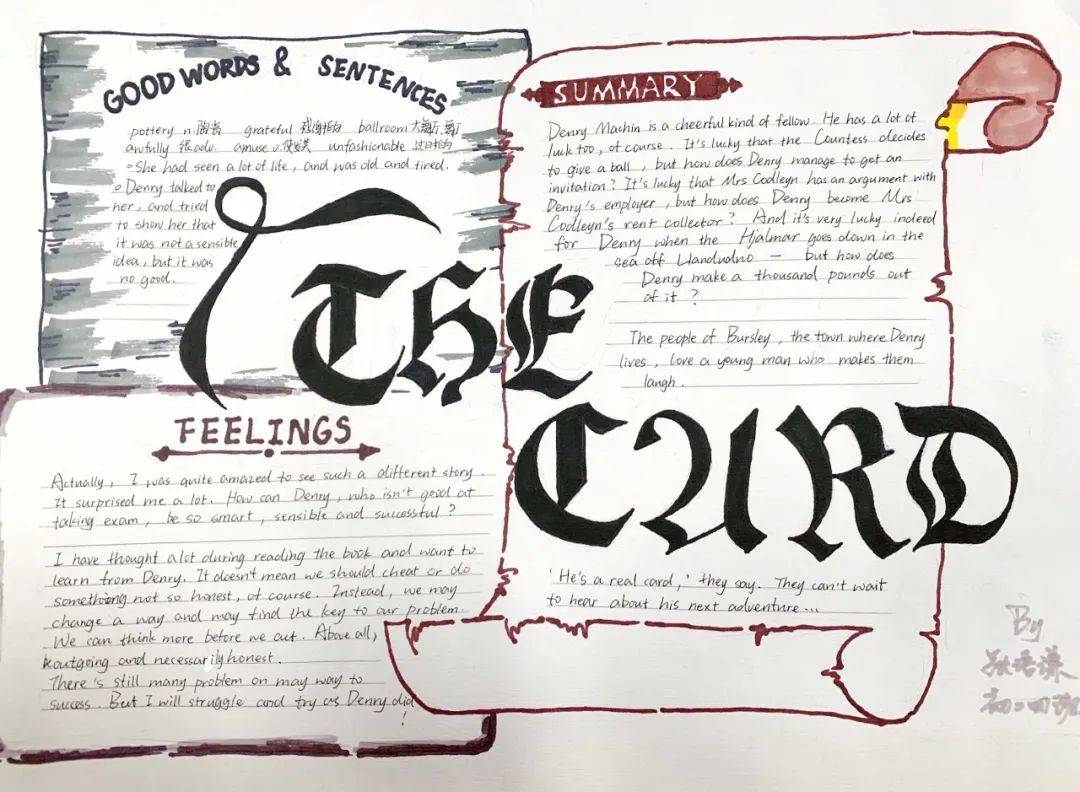 GOOD WORDS & SENTENCES
pottery n.陶瓷 grateful 感谢的 ballroom 大舞厅
awfully 很adv. amuse v.使娱笑 unfashionable 过时的
She had seen a lot of life, and was old and tired.
Denry talked to
her, and tried
to show her that
it was not a sensible
idea, but it was
no good.
SUMMARY
Denry Mashin is a cheerful kind of fellow. He has a lot of
luck too, of course. It's lucky that the Countess decides
to give a ball, but how does Denry manage to get an
invitation? It's lucky that Mrs Codleyn has an argument with
Denry's employer, but how does Denry become Mrs
Codleyn's rent collector? And it's very lucky indeed
for Denry when the Hjalmar goes down in the
sea off Llandudno — but how does
Denry make a thousand pounds out
of it?
The people of Bursley, the town where Denry
lives, love a young man who makes them
laugh.
THE
CARD
'He's a real card,' they say. They can't wait
to hear about his next adventure...
FEELINGS
Actually, I was quite amazed to see such a different story.
It surprised me a lot. How can Denry, who isn't good at
taking exam, be so smart, sensible and successful?
I have thought alot during reading the book and want to
learn from Denry. It doesn't mean we should cheat or do
something not so honest, of course. Instead, we may
change a way and may find the key to our problem.
We can think more before we act. Above all,
outgoing and necessarily honest.
There's still many problem on may way to
success. But I will struggle and try as Denry did
!
By
初二四班